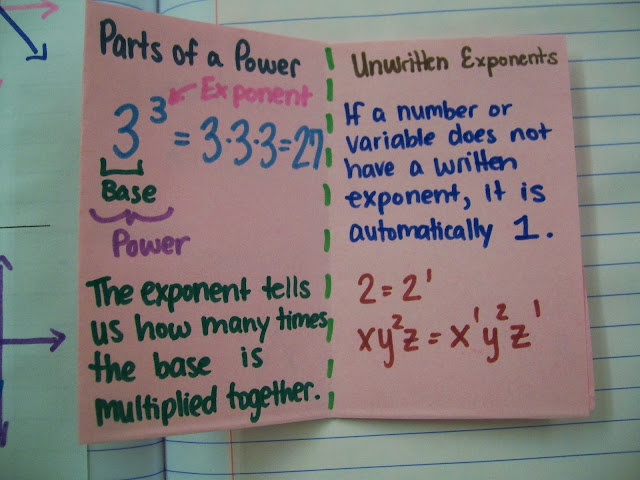 Parts of a Power
3³ = 3·3·3=27
Exponent
Base
Power
The exponent tells
us how many times
the base is
multiplied together.
Unwritten Exponents
If a number or
variable does not
have a written
exponent, it is
automatically 1.
2 = 2¹
xy²z = x¹y²z¹